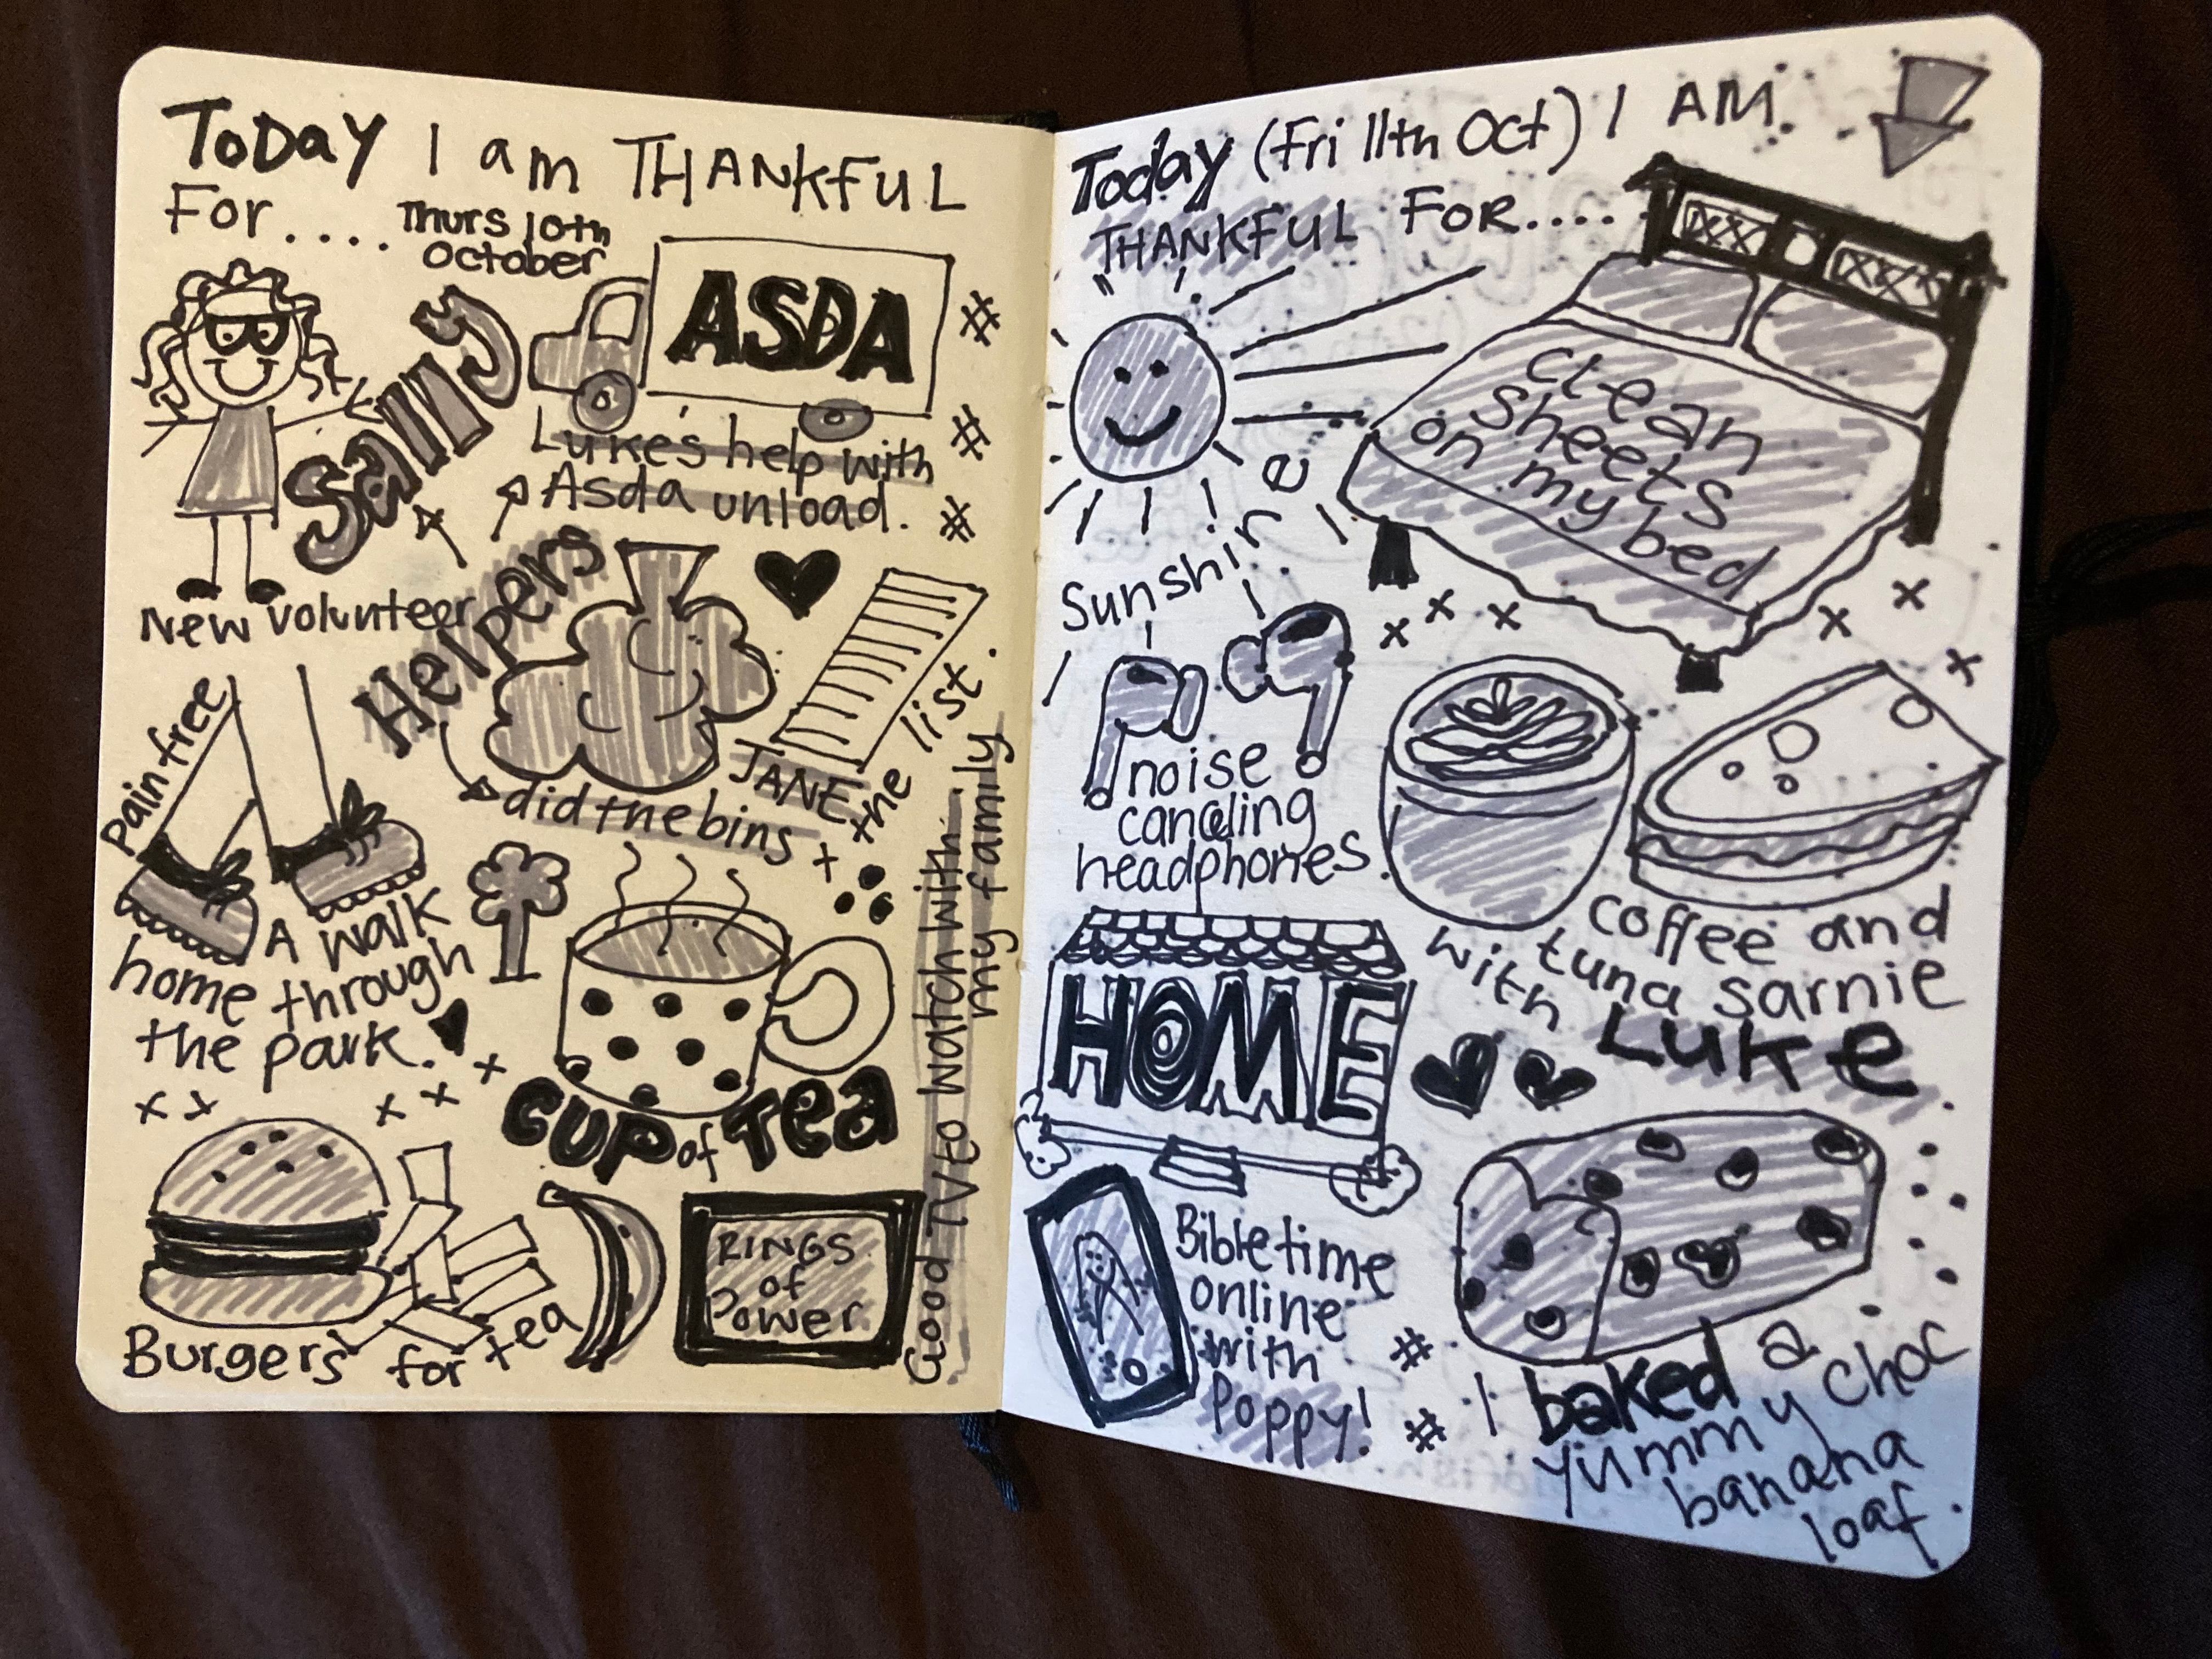 Today I am THANKFUL
For.... Thurs 10th
October
Sally
New volunteer
ASDA
Luke's help with
Asda unload.
Helpers
did the bins
JANE +
the list.
Pain free
A walk
home through
the park.
CUP of Tea
Burgers for tea
RINGS
of
Power
Good TV to watch with
my family
Today (Fri 11th Oct) I AM
THANKFUL FOR....
clean
sheets
on my bed
Sunshine
noise
canceling
headphones.
coffee and
tuna sarnie
with Luke
HOME
Bible time
online
with
Poppy!
I baked a
yummy choc
banana
loaf.